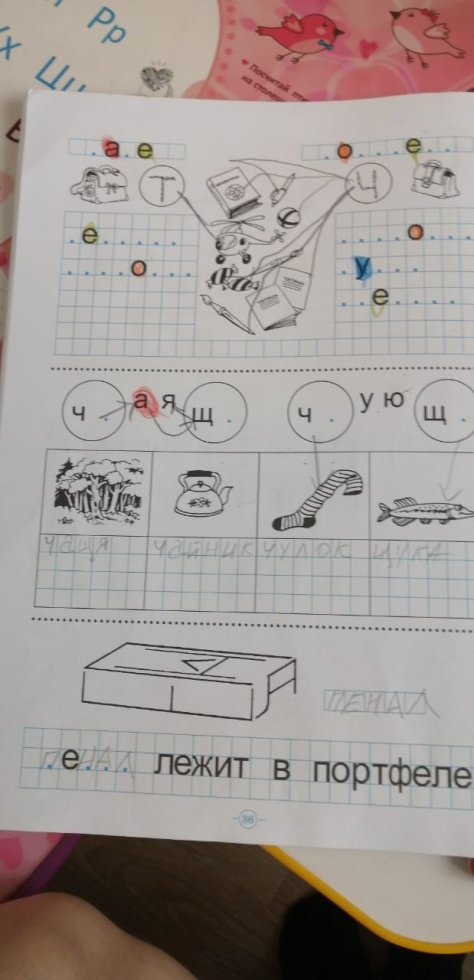 Рр
Цц
Посчитай
на столе
. а . е .
. о . . . е . .
Т
Ч
. е . . . . .
. . . . о . . .
. . . . о . .
. у . . . .
. . е . . . .
ч .
а я
щ .
ч .
у ю
щ .
чащя
чайник
чулок
щука
пенал
пенал лежит в портфеле
36